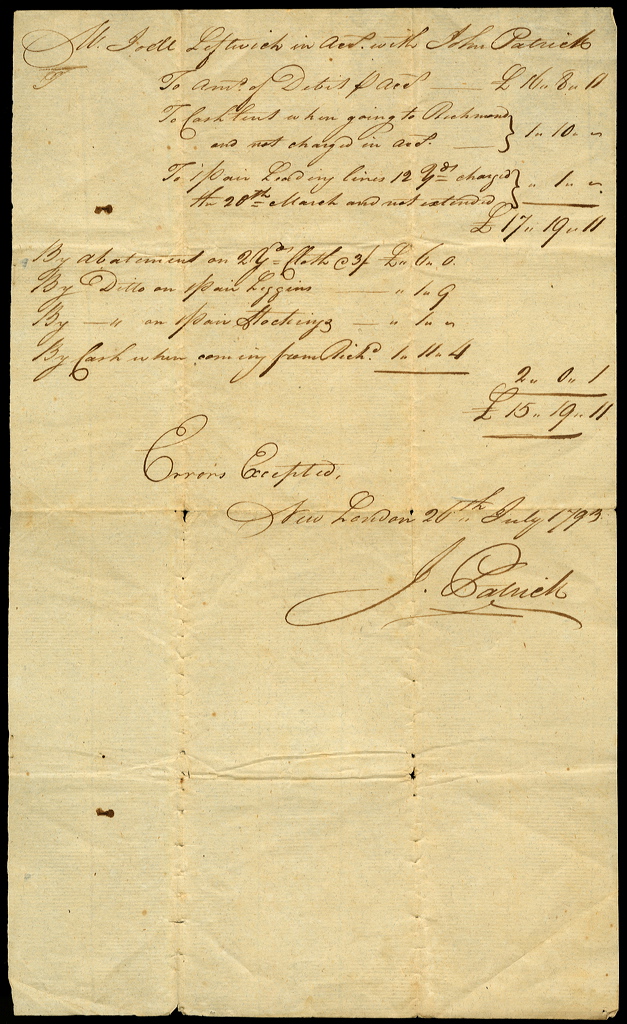 Mr. Joell Leftwich in acct. with John Patrick
To Amt. of Debit ꝑ Acct —— £ 16 " 8 " 11
To Cash lent when going to Richmond
and not charged in acct. — } 1 " 10 " "
To 1 pair Leading lines 12 Yds charged
the 20th March and not extended } " 1 " "
£ 17 " 19 " 11
By Abatement on 2 Yds Cloth @ 3/ £ " 6 " 0
By Ditto on 1 pair Leggins —— " 1 " 9
By — " on 1 pair Stockings — " 1 " "
By Cash when coming from Richd. 1 " 11 " 4
2 " 0 " 1
£ 15 " 19 " 11
Errors Excepted,
New London 26th July 1793
J. Patrick